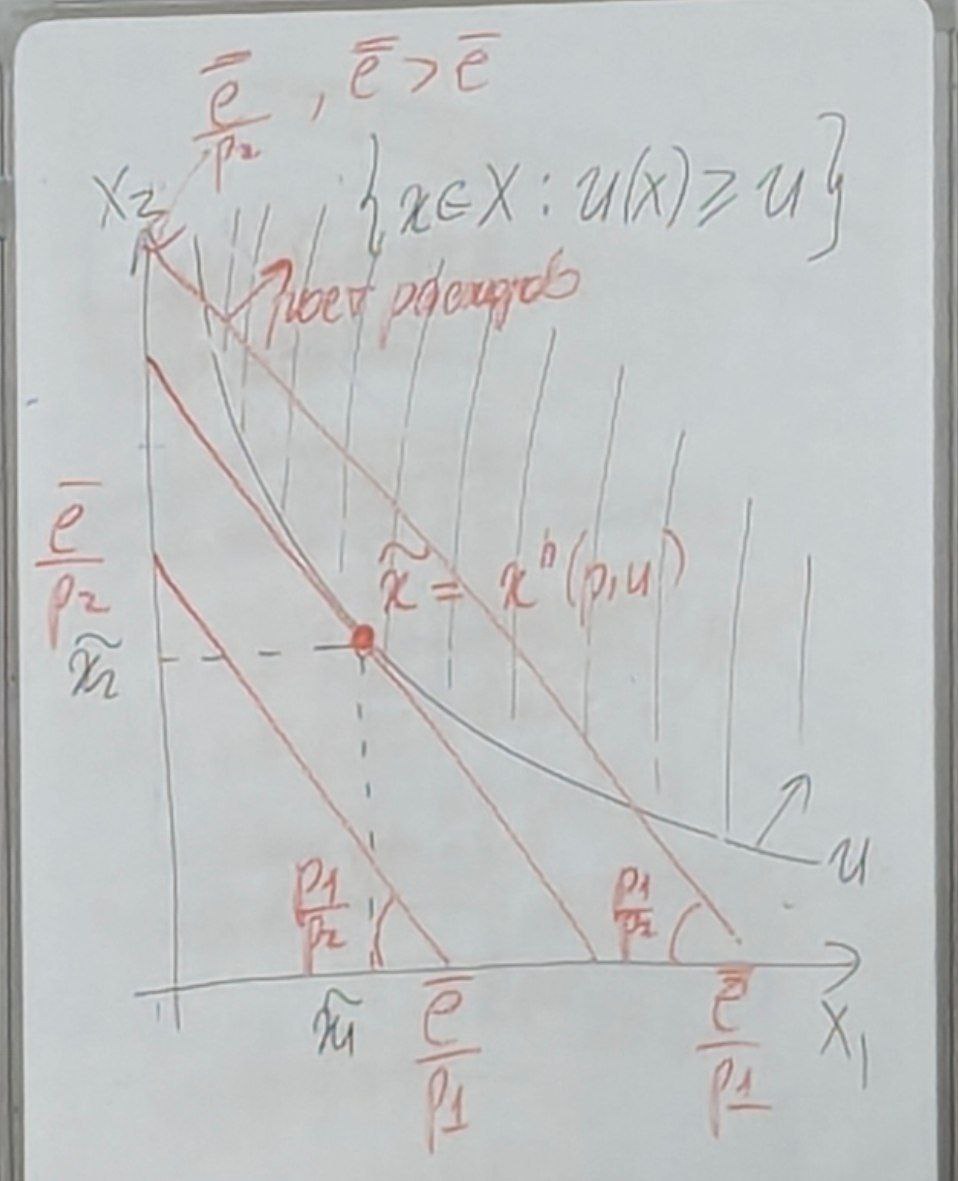 e̿/p₂ , e̿ > e̅
x₂
{x ∈ X : u(x) ≥ u}
рост расходов
e̅/p₂
x̃ = xʰ(p,u)
x̃₂
p₁/p₂
p₁/p₂
u
x̃₁
e̅/p₁
e̿/p₁
x₁